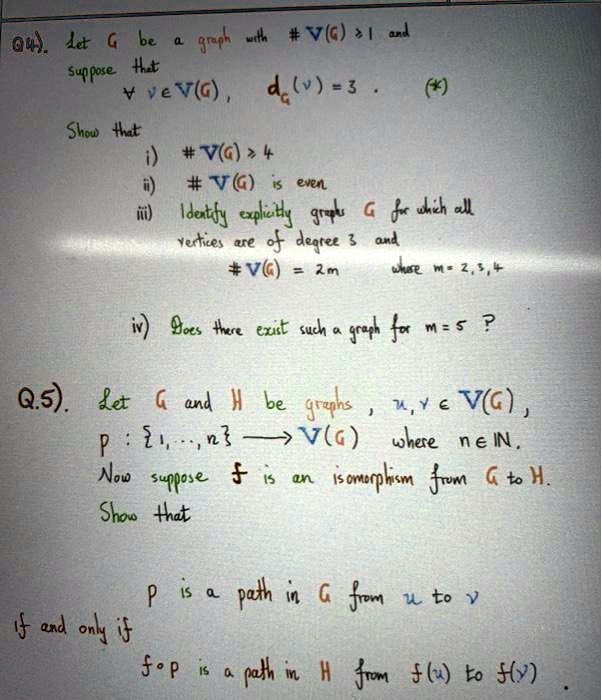 Q4). Let G be a graph with # V(G) ⩾ 1 and
suppose that
∀ v ∈ V(G), d_G(v) = 3 . (*)
Show that
i) # V(G) ⩾ 4
ii) # V(G) is even
iii) Identify explicitly graphs G for which all
vertices are of degree 3 and
# V(G) = 2m where m = 2, 3, 4
iv) Does there exist such a graph for m = 5 ?
Q.5). Let G and H be graphs , u, v ∈ V(G) ,
p : {1, ..., n} ⟶ V(G) where n ∈ ℕ.
Now suppose f is an isomorphism from G to H.
Show that
p is a path in G from u to v
if and only if
f∘p is a path in H from f(u) to f(v) .